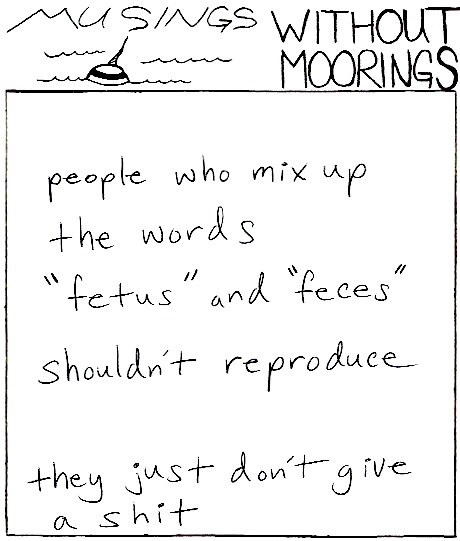 MUSINGS WITHOUT
MOORINGS
people who mix up
the words
"fetus" and "feces"
shouldn't reproduce
they just don't give
a shit